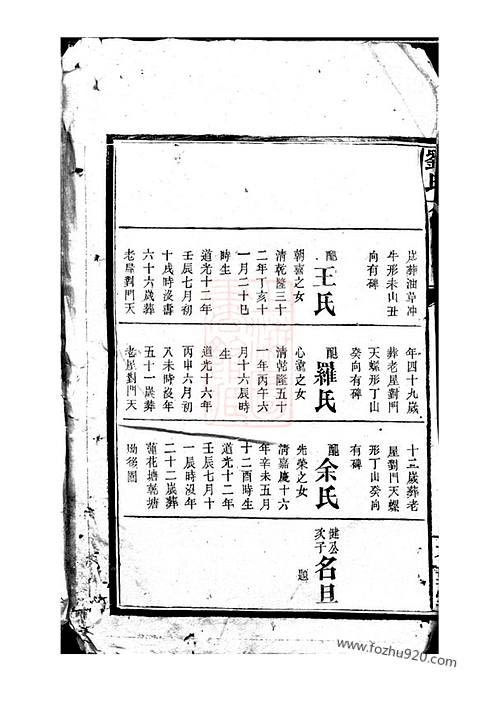 劉氏
歲葬油草冲
牛形未山丑
向有碑
配王氏
朝嘉之女
清乾隆三十
二年丁亥十
一月二十巳
時生
道光十二年
壬辰七月初
十戌時沒壽
六十六歲葬
老屋對門天
年四十九歲
葬老屋對門
天螺形丁山
癸向有碑
配羅氏
心之女
清乾隆五十
一年丙午六
月十六辰時
生
道光十六年
丙申六月初
八未時沒年
五十一歲葬
老屋對門天
十二歲葬老
屋對門天螺
形丁山癸向
有碑
配余氏
先榮之女
清嘉慶十六
年辛未五月
十二酉時生
道光十二年
壬辰七月十
一辰時沒年
二十二歲葬
蓮花塘乾塘
坳後園
健公
次子
名旦
題
www.fozhu920.com